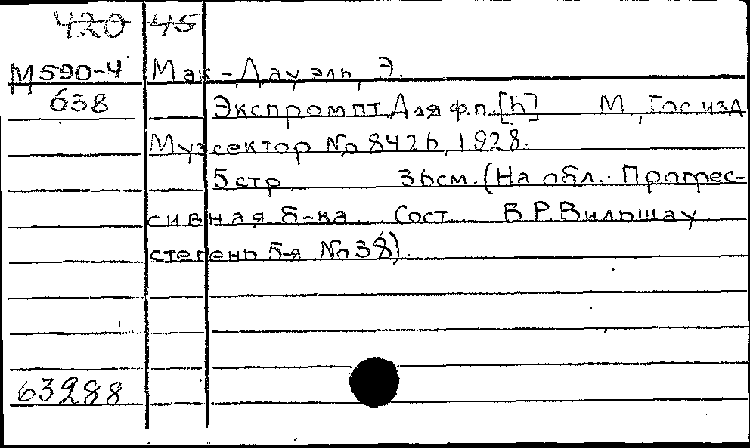 420 45
М590-4 Мак-Дауэль, Э.
638 Экспромпт. Для ф.п. [h] М., Госизд
Музсектор No 8426, 1928.
5 стр 36 см. (На обл.: Прогрес-
сивная б-ка. Сост. В.Р. Вильшау
степень 5-я No 38).
63288